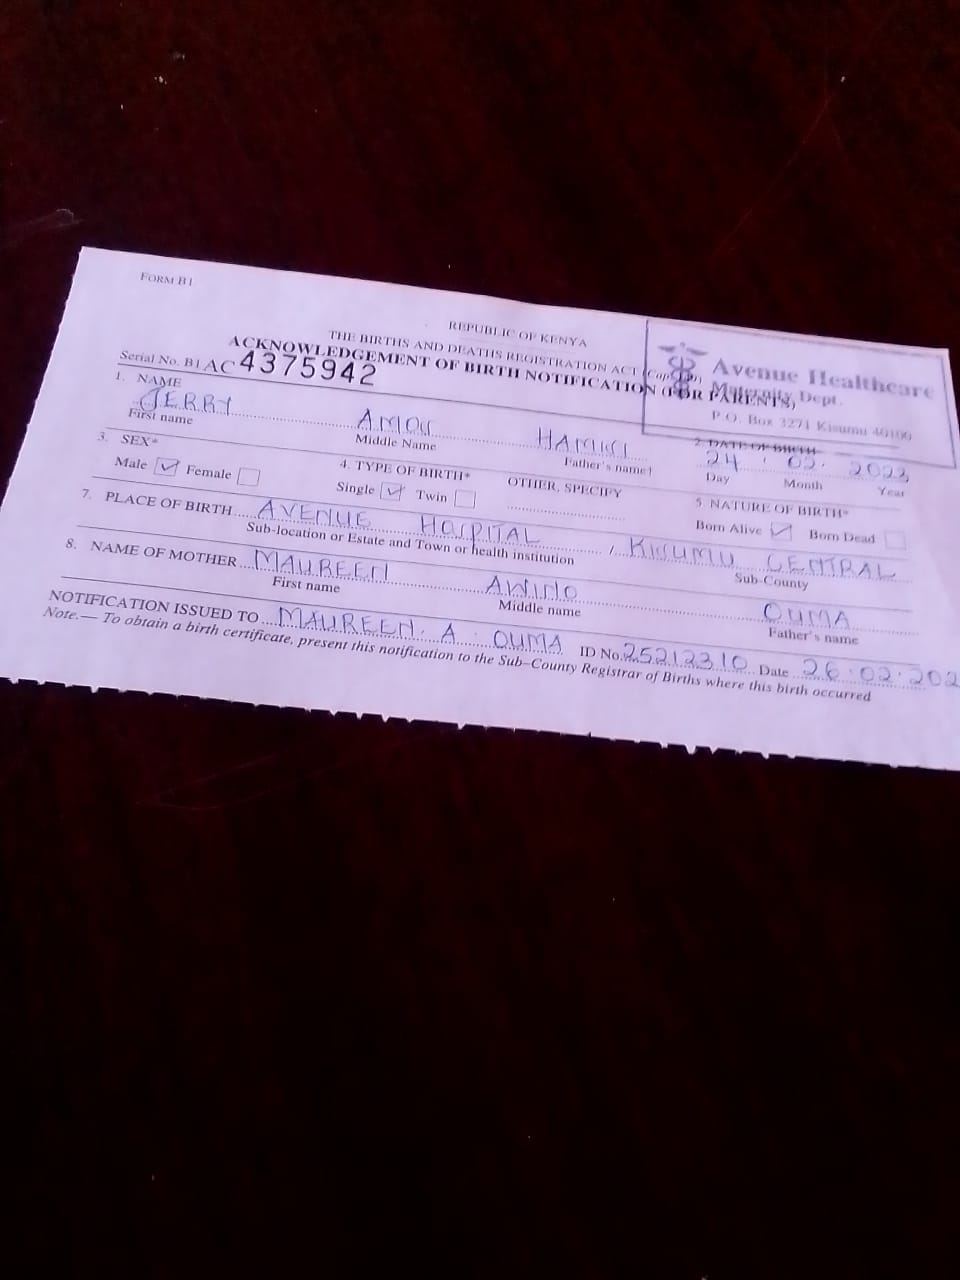 FORM B1
REPUBLIC OF KENYA
THE BIRTHS AND DEATHS REGISTRATION ACT (Cap.
ACKNOWLEDGEMENT OF BIRTH NOTIFICATION (FOR PARENTS)
Avenue Healthcare
Maternity Dept.
P.O. Box 3271 Kisumu 40100
Serial No. B1 AC 4375942
1. NAME
JERRY AMOS HAMISI
First name Middle Name Father's name†
2. DATE OF BIRTH
24 . 02 . 2022
Day Month Year
3. SEX*
Male Female
4. TYPE OF BIRTH*
Single Twin
OTHER, SPECIFY
5. NATURE OF BIRTH*
Born Alive Born Dead
7. PLACE OF BIRTH AVENUE HOSPITAL / KISUMU CENTRAL
Sub-location or Estate and Town or health institution Sub-County
8. NAME OF MOTHER MAUREEN AWINO OUMA
First name Middle name Father's name
NOTIFICATION ISSUED TO MAUREEN. A. OUMA ID No. 25212310 Date 26.02.202
Note.— To obtain a birth certificate, present this notification to the Sub–County Registrar of Births where this birth occurred